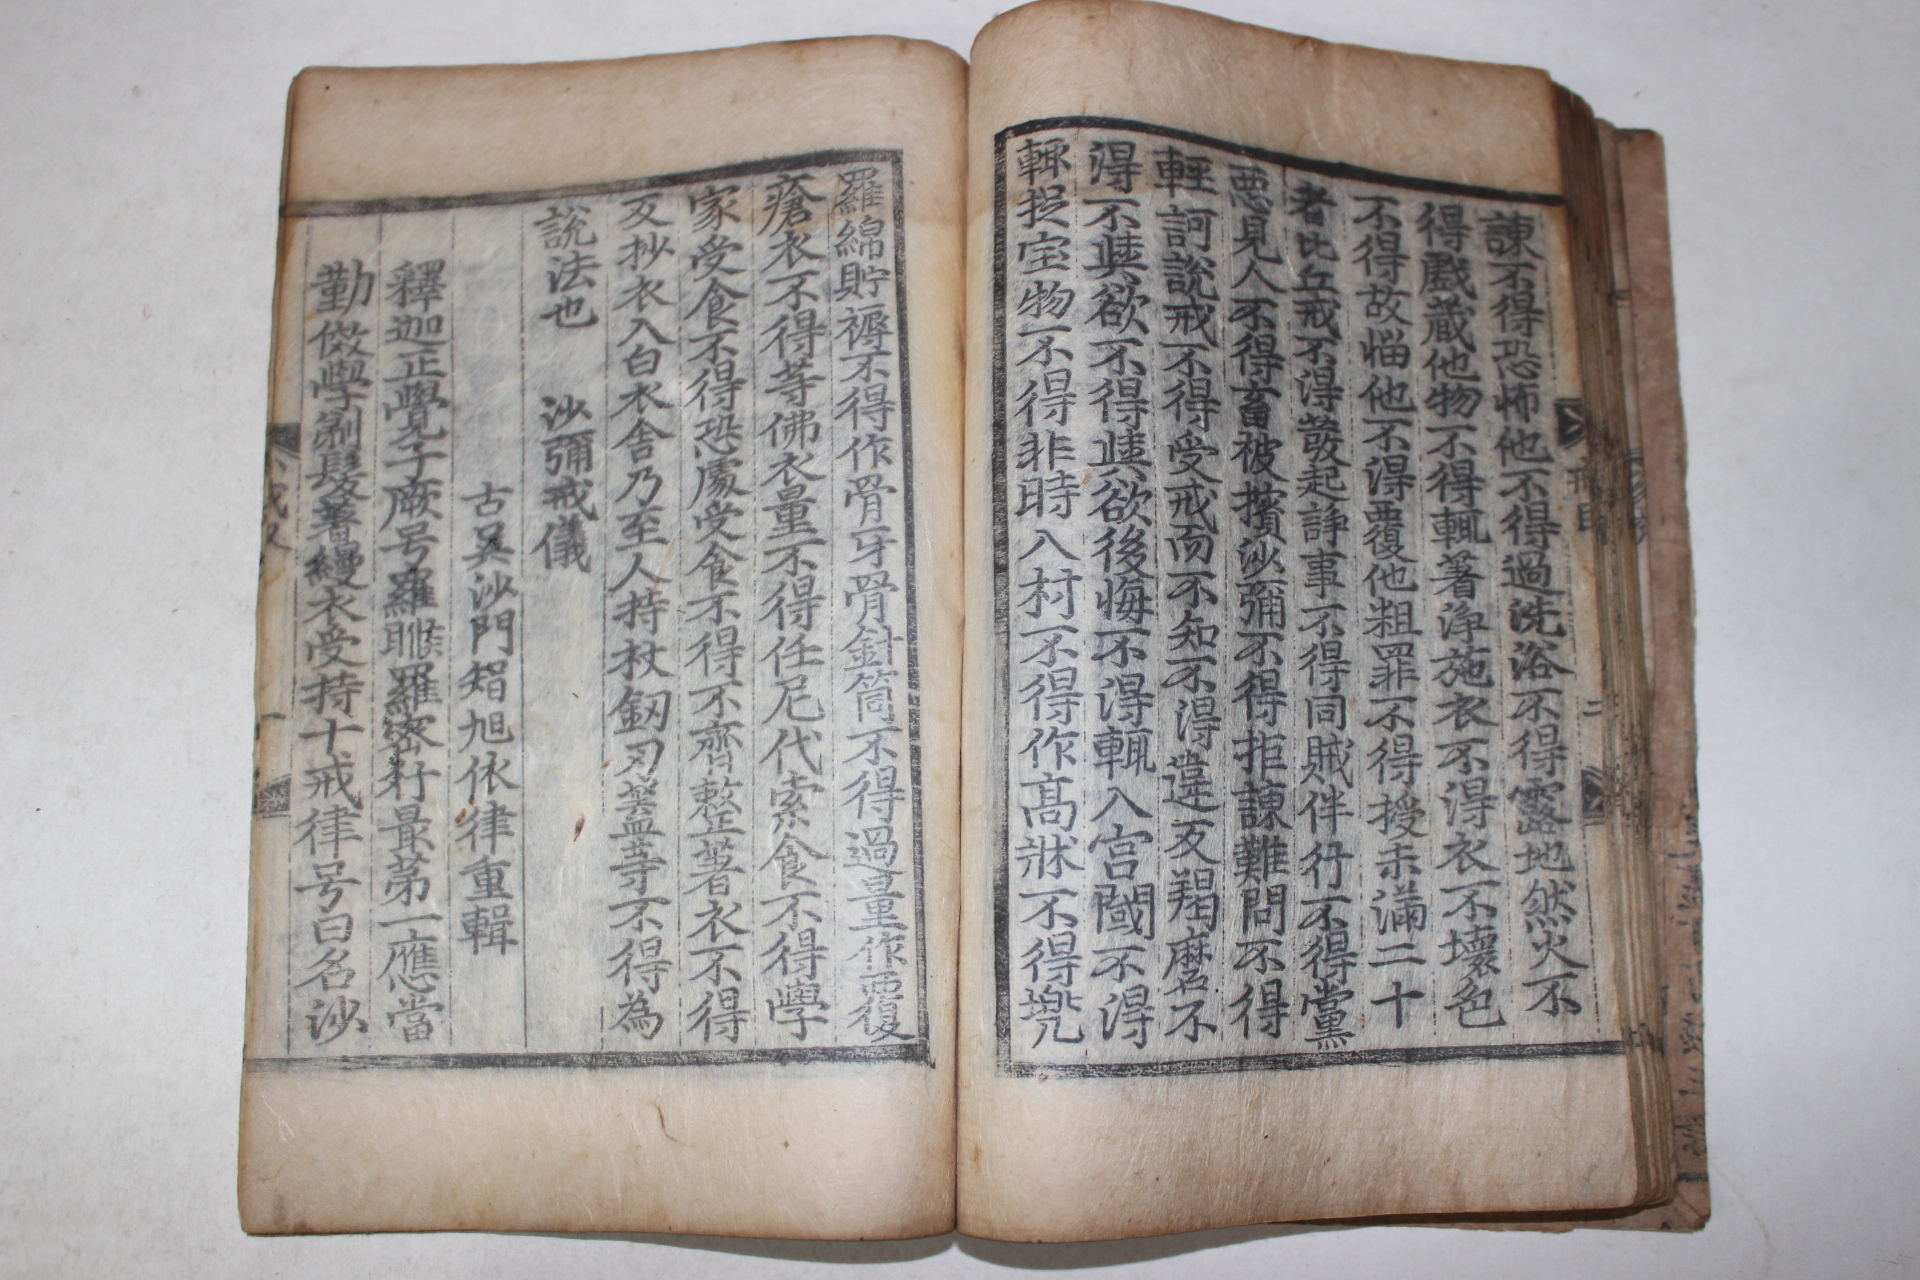 諫不得恐怖他不得過洗浴不得露地然火不
得戲藏他物不得輒著淨施衣不得衣不壞色
不得故惱他不得覆他粗罪不得授未滿二十
者比丘戒不得發起諍事不得同賊伴行不得黨
惡見人不得畜被擯沙彌不得拒諫難問不得
輕訶說戒不得受戒而不知不得違反羯磨不
得不與欲不得與欲後悔不得輒入宮閾不得
輒捉宝物不得非時入村不得作高牀不得兠
羅綿貯褥不得作骨牙骨針筒不得過量作覆
瘡衣不得等佛衣量不得任尼代索食不得學
家受食不得恐處受食不得不齊整著衣不得
反抄衣入白衣舍乃至人持杖釼刃蓋等不得為
說法也
沙彌戒儀
古吳沙門智旭依律重輯
釋迦正覺子厥号羅睺羅密行最苐一應當
勤倣學剃髮著縵衣受持十戒律号曰名沙